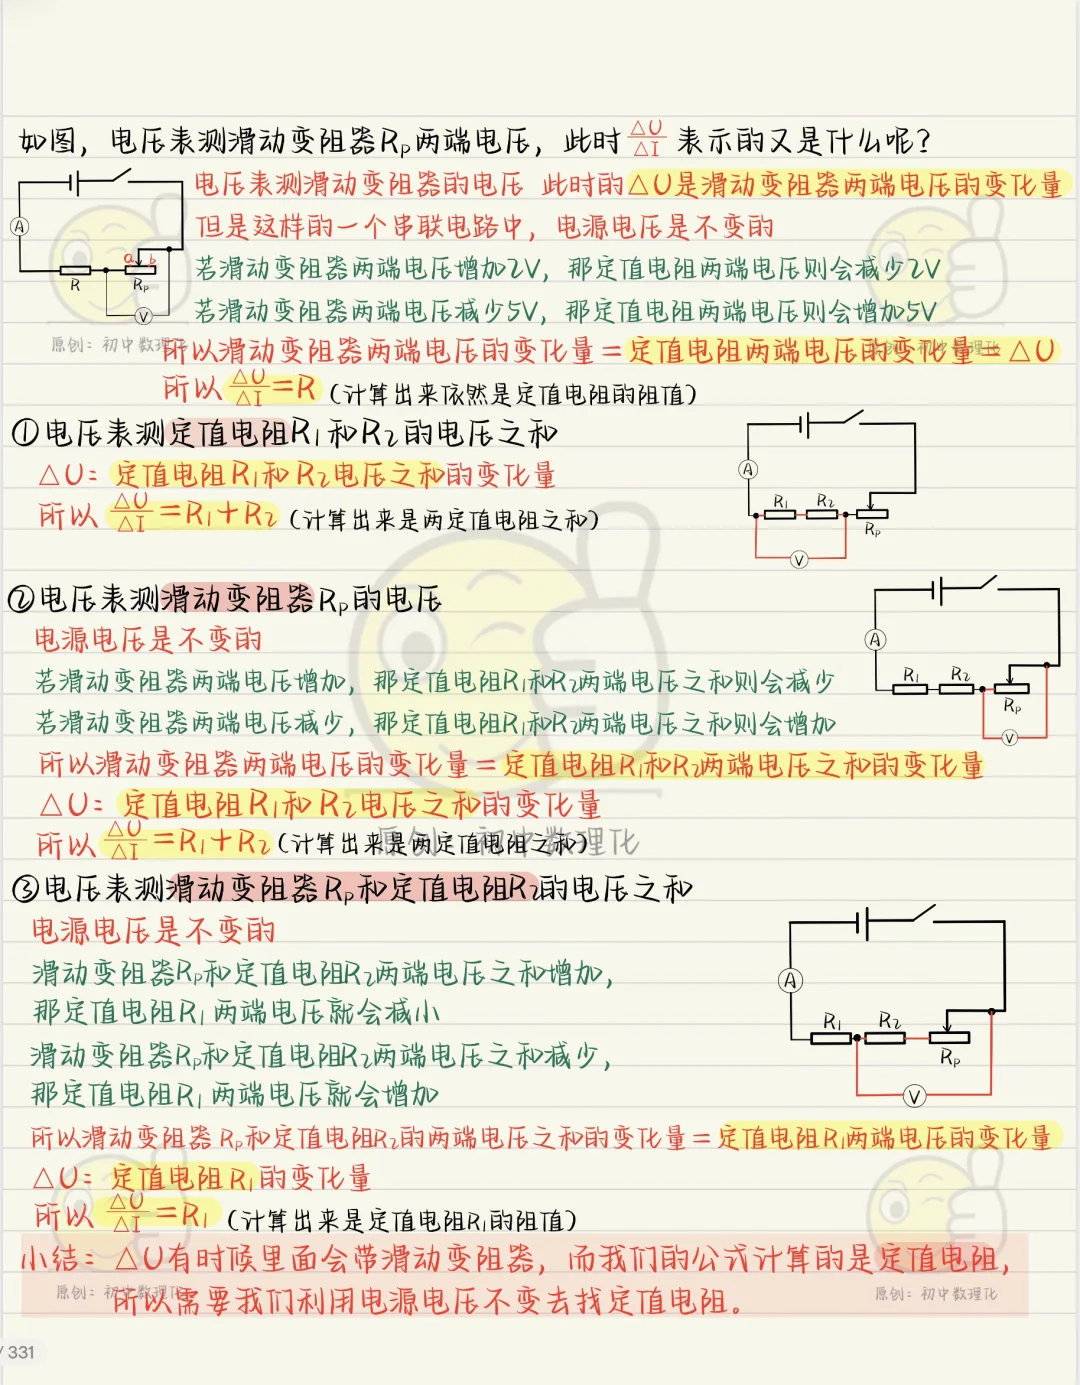 如图，电压表测滑动变阻器Rp两端电压，此时△U/△I 表示的又是什么呢？
电压表测滑动变阻器的电压 此时的△U是滑动变阻器两端电压的变化量
但是这样的一个串联电路中，电源电压是不变的
若滑动变阻器两端电压增加2V，那定值电阻两端电压则会减少2V
若滑动变阻器两端电压减少5V，那定值电阻两端电压则会增加5V
A
a b
R Rp
V
原创：初中数理化
原创：初中数理化
所以滑动变阻器两端电压的变化量=定值电阻两端电压的变化量=△U
所以△U/△I=R（计算出来依然是定值电阻的阻值）
①电压表测定值电阻R1和R2的电压之和
△U：定值电阻R1和R2电压之和的变化量
所以△U/△I=R1+R2（计算出来是两定值电阻之和）
A
R1 R2
Rp
V
②电压表测滑动变阻器Rp的电压
电源电压是不变的
若滑动变阻器两端电压增加，那定值电阻R1和R2两端电压之和则会减少
若滑动变阻器两端电压减少，那定值电阻R1和R2两端电压之和则会增加
A
R1 R2
Rp
V
所以滑动变阻器两端电压的变化量=定值电阻R1和R2两端电压之和的变化量
△U：定值电阻R1和R2电压之和的变化量
所以△U/△I=R1+R2（计算出来是两定值电阻之和）
原创：初中数理化
③电压表测滑动变阻器Rp和定值电阻R2的电压之和
电源电压是不变的
滑动变阻器Rp和定值电阻R2两端电压之和增加，
那定值电阻R1两端电压就会减小
滑动变阻器Rp和定值电阻R2两端电压之和减少，
那定值电阻R1两端电压就会增加
A
R1 R2
Rp
V
所以滑动变阻器Rp和定值电阻R2的两端电压之和的变化量=定值电阻R1两端电压的变化量
△U：定值电阻R1的变化量
所以△U/△I=R1（计算出来是定值电阻R1的阻值）
小结：△U有时候里面会带滑动变阻器，而我们的公式计算的是定值电阻，
所以需要我们利用电源电压不变去找定值电阻。
原创：初中数理化
原创：初中数理化
/ 331